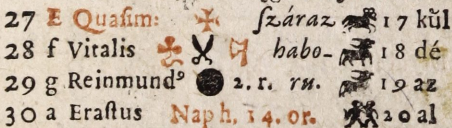 27 E Quasim: ſzáraz 17 kűl
28 f Vitalis habo- 18 dé
29 g Reinmundꝰ 2. r. ru. 19 az
30 a Eraſtus Nap h. 14. or. 20 al